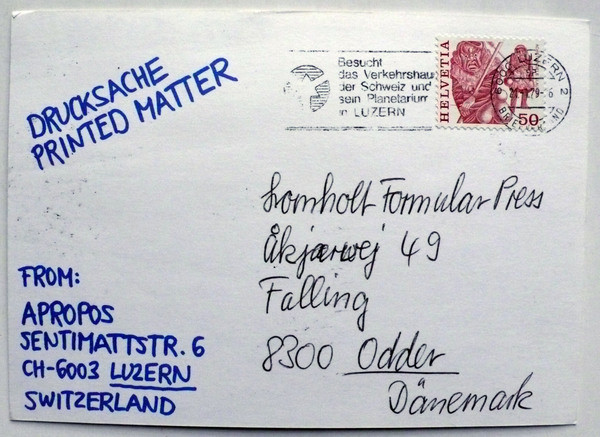 DRUCKSACHE
PRINTED MATTER
Besucht
das Verkehrshaus
der Schweiz und
sein Planetarium
in LUZERN
HELVETIA
50
6000 LUZERN 2
Lomholt Formular Press
Åkjærvej 49
Falling
8300 Odder
Dänemark
FROM:
APROPOS
SENTIMATTSTR. 6
CH-6003 LUZERN
SWITZERLAND